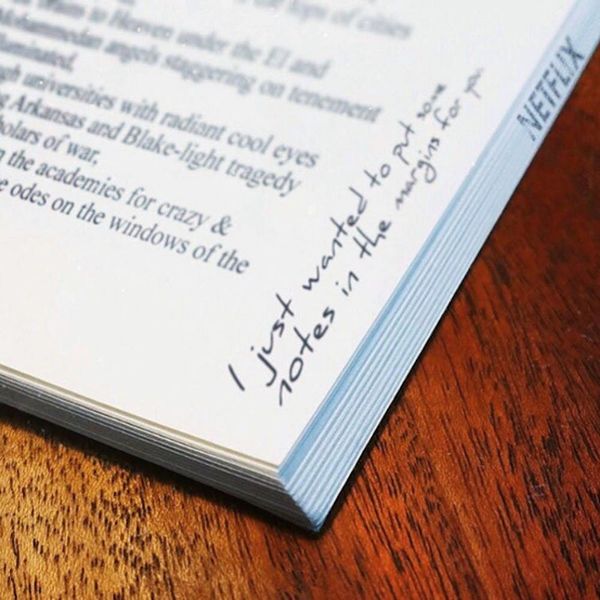 tops of cities
to Heaven under the El and
Mohammedan angels staggering on tenement
lluminated.
gh universities with radiant cool eyes
g Arkansas and Blake-light tragedy
holars of war,
n the academies for crazy &
e odes on the windows of the
I just wanted to put some
notes in the margins for you
NETFLIX